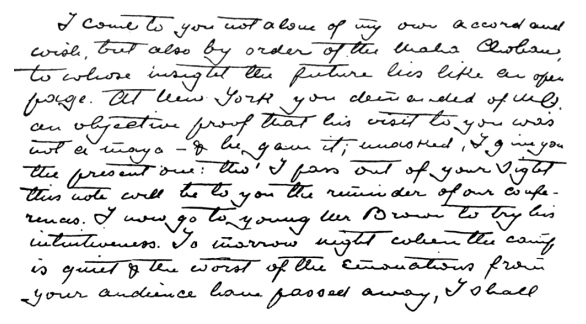 I come to you not alone of my own accord and
wish, but also by order of the Maha Chohan,
to whose insight the future lies like an open
page. At New York you demanded of M∴
an objective proof that his visit to you was
not a maya — & he gave it; unasked, I give you
the present one: tho' I pass out of your sight
this note will be to you the reminder of our confe-
rences. I now go to young Mr Brown to try his
intuitiveness. To morrow night when the camp
is quiet & the worst of the emanations from
your audience have passed away, I shall